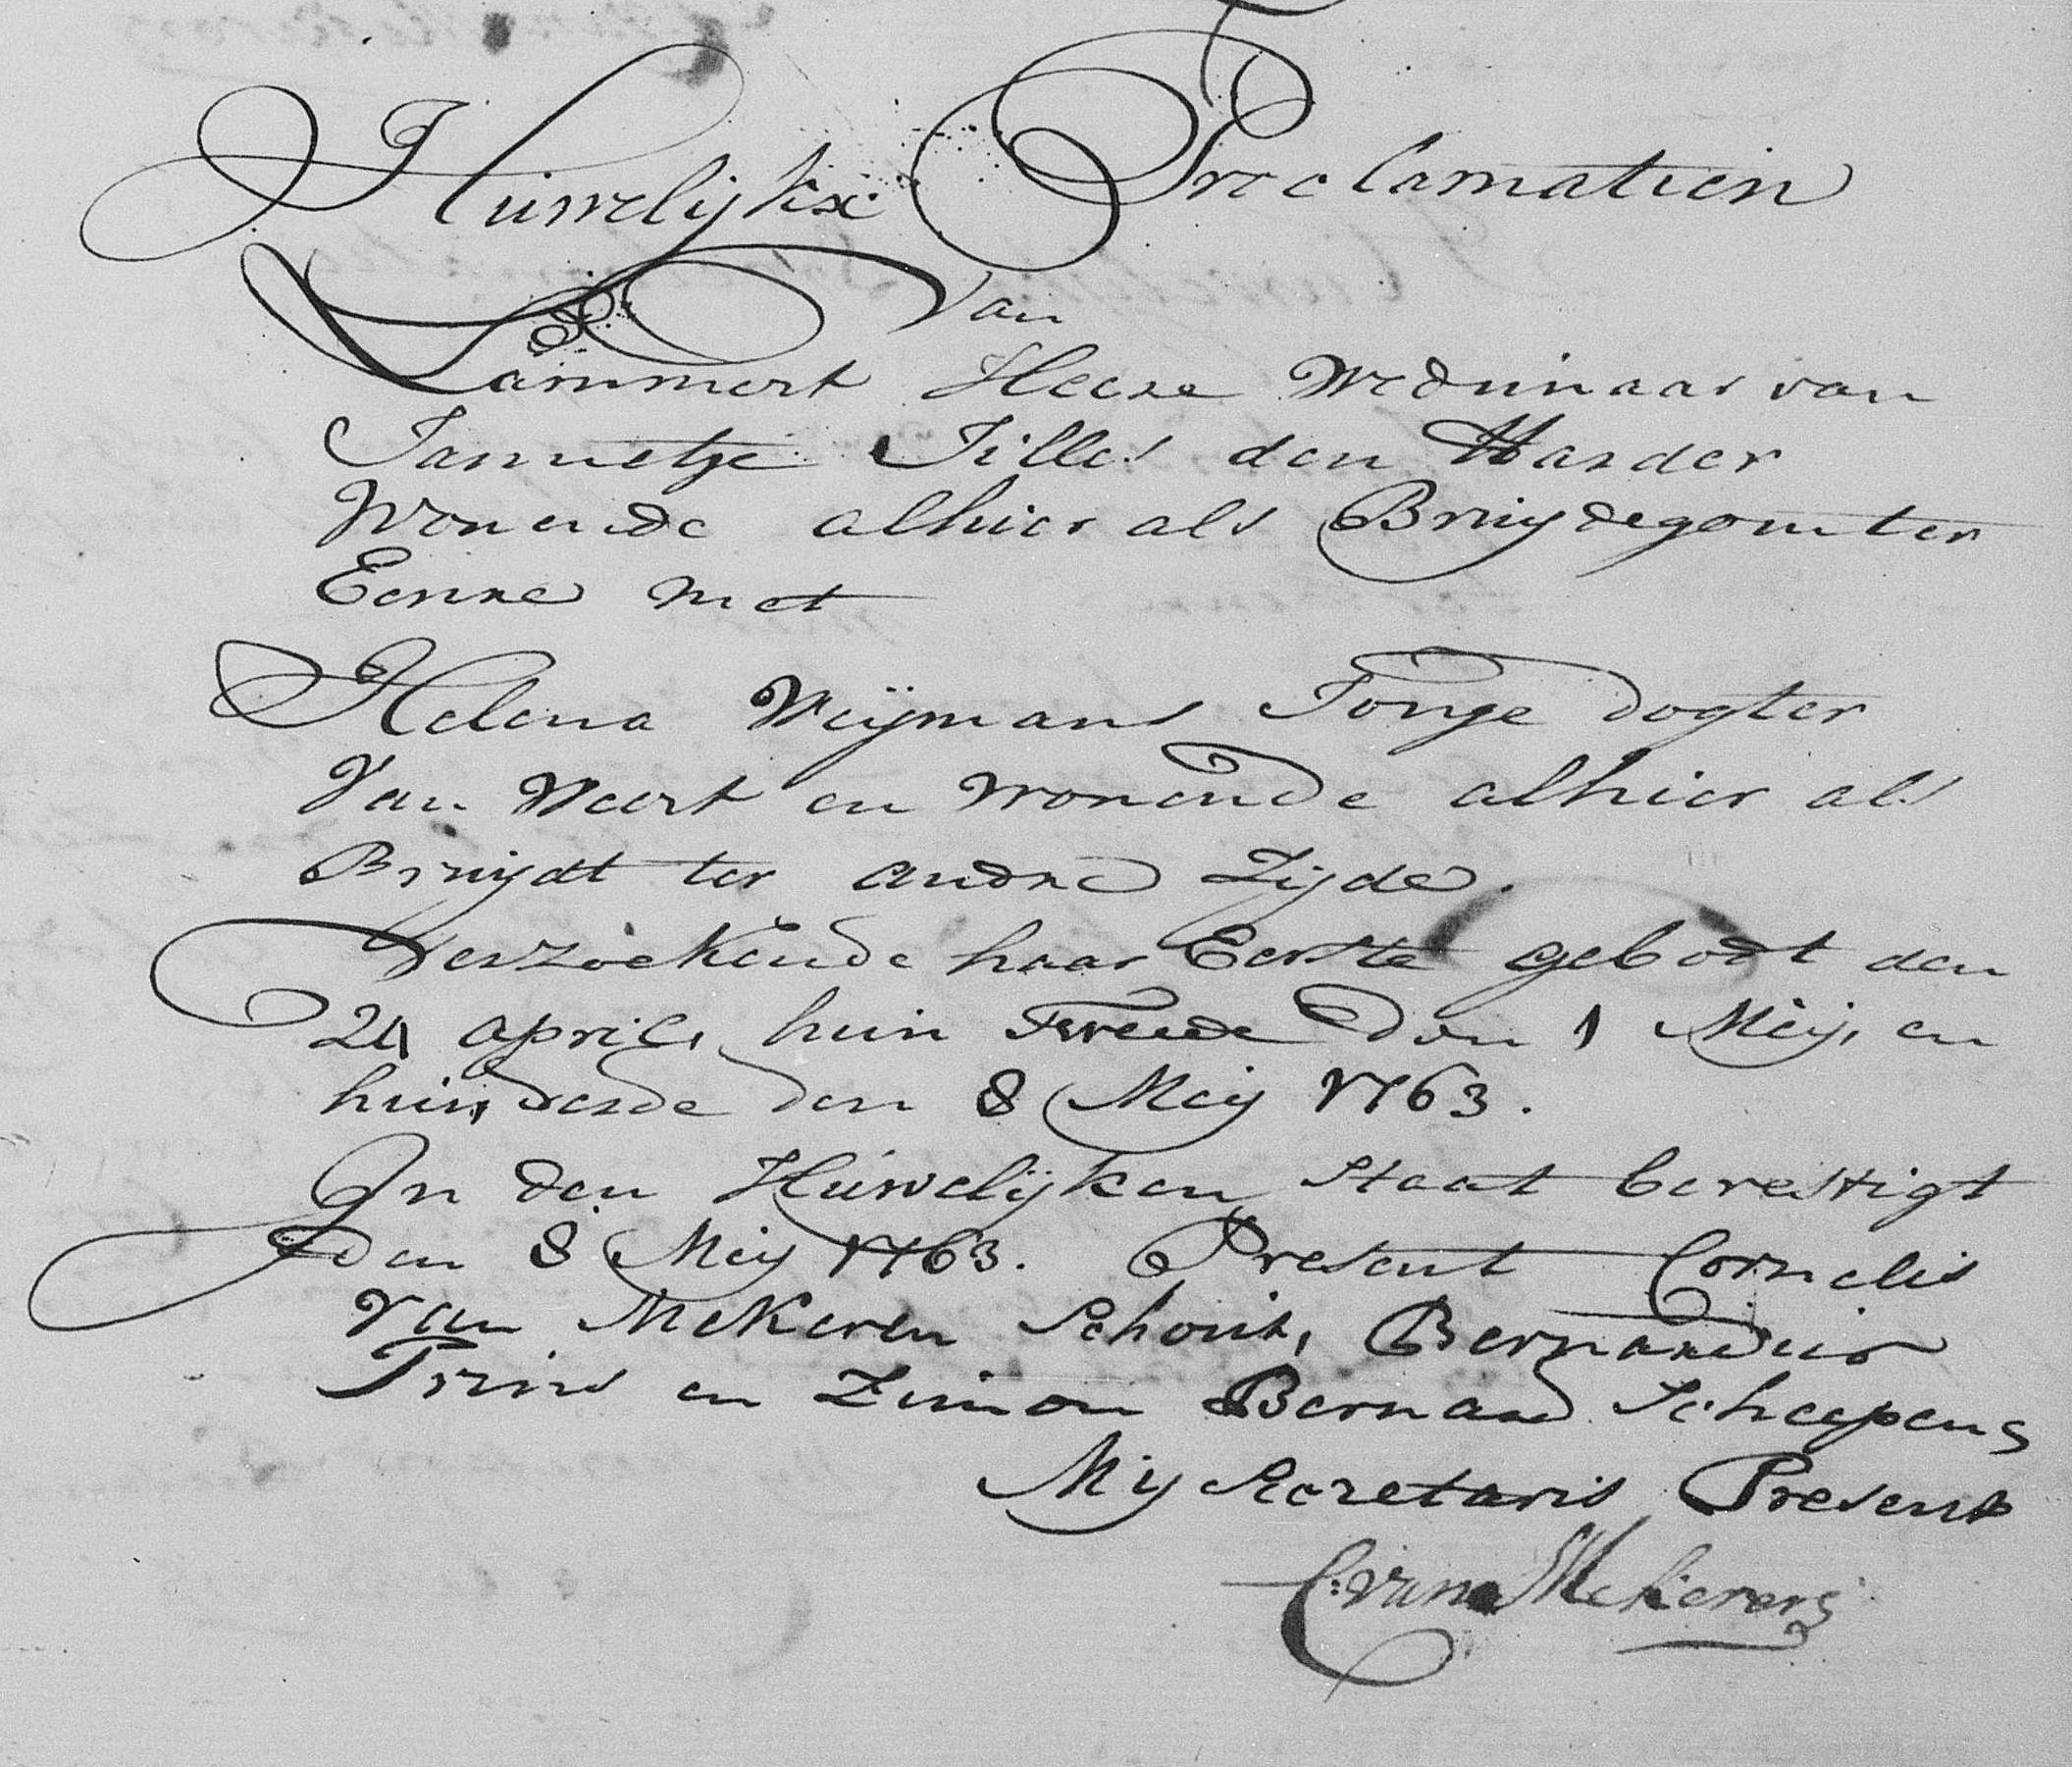 Huwelijkse Proclamatien
van
Lammert Heere Weduinaar van
Jannetje Jilles den Harder
Wonende alhier als Bruydegom ter
Eenre met
Helena Weijmans Jonge dogter
Van Weert en wonende alhier als
Bruijdt ter andre Zijde.
Verzoekende haar Eerste gebodt den
24 april, hun Tweede den 1 Meij, en
hun derde den 8 Meij 1763.
In den Huwelijken Staat bevestigt
den 8 Meij 1763. Present Cornelis
Van Mekeren Schout, Bernardus
Prins en Zimon Bernard Scheepens
Mij Secretaris Present
C: van Mekeren